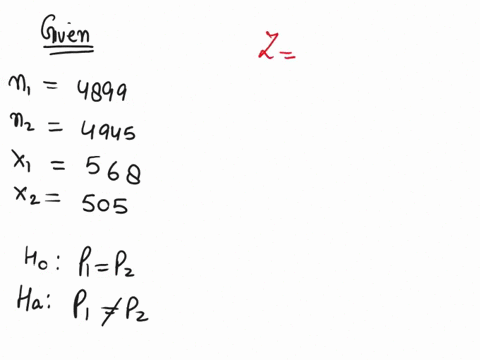 Given
n₁ = 4899
n₂ = 4945
x₁ = 568
x₂ = 505
H₀: P₁ = P₂
Ha: P₁ ≠ P₂
Z =